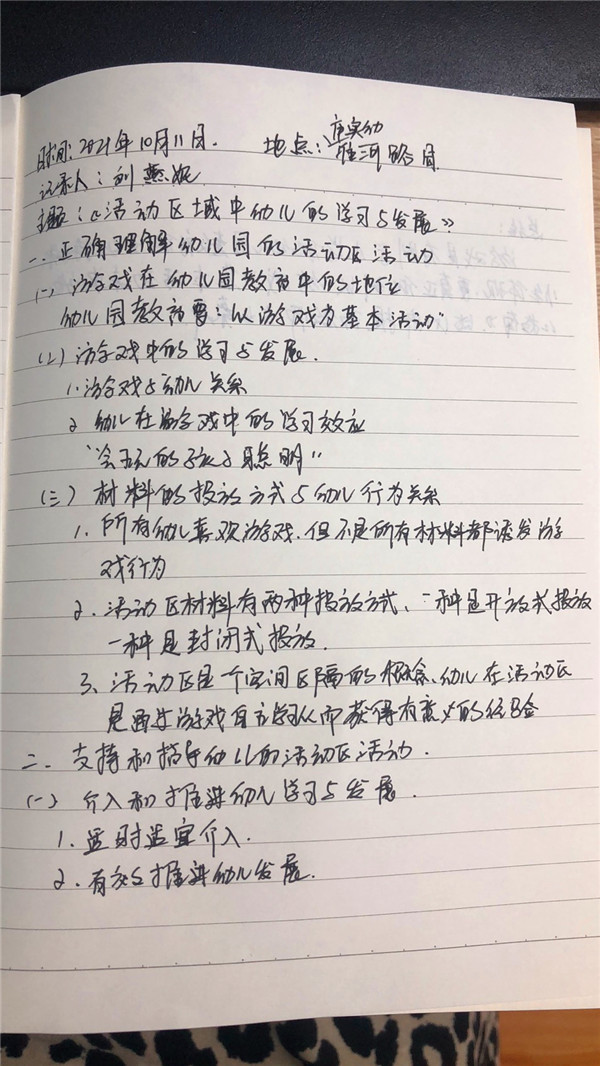 市实幼
时间：2021年10月11日. 地点：雅河路园
记录人：刘燕妮
主题：《活动区域中幼儿的学习与发展》
一、正确理解幼儿园的活动区活动
(一) 游戏在幼儿园教育中的地位
幼儿园教育要：以游戏为基本活动"
(二) 游戏中的学习与发展.
1. 游戏与幼儿关系
2 幼儿在游戏中的学习效应
"会玩的孩子聪明"
(三) 材料的投放方式与幼儿行为关系
1. 所有幼儿喜欢游戏. 但不是所有材料都诱发游
戏行为
2. 活动区材料有两种投放方式、一种是开放式投放
一种是封闭式投放.
3、活动区是一个空间区隔的概念、幼儿在活动区
是通过游戏自主学习从而获得有意义的经验
二、支持和指导幼儿的活动区活动.
(一) 介入和推进幼儿学习与发展.
1. 适时适宜介入.
2. 有效推进幼儿发展.